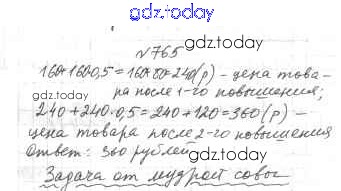 gdz.today
№765
gdz.today
160+160·0,5=160+80=240(р) - цена това-
ра после 1-го повышения;
gdz.today
240+240·0,5=240+120=360(р) -
цена товара после 2-го повышения
Ответ: 360 рублей
gdz.today
Задача от мудрой совы